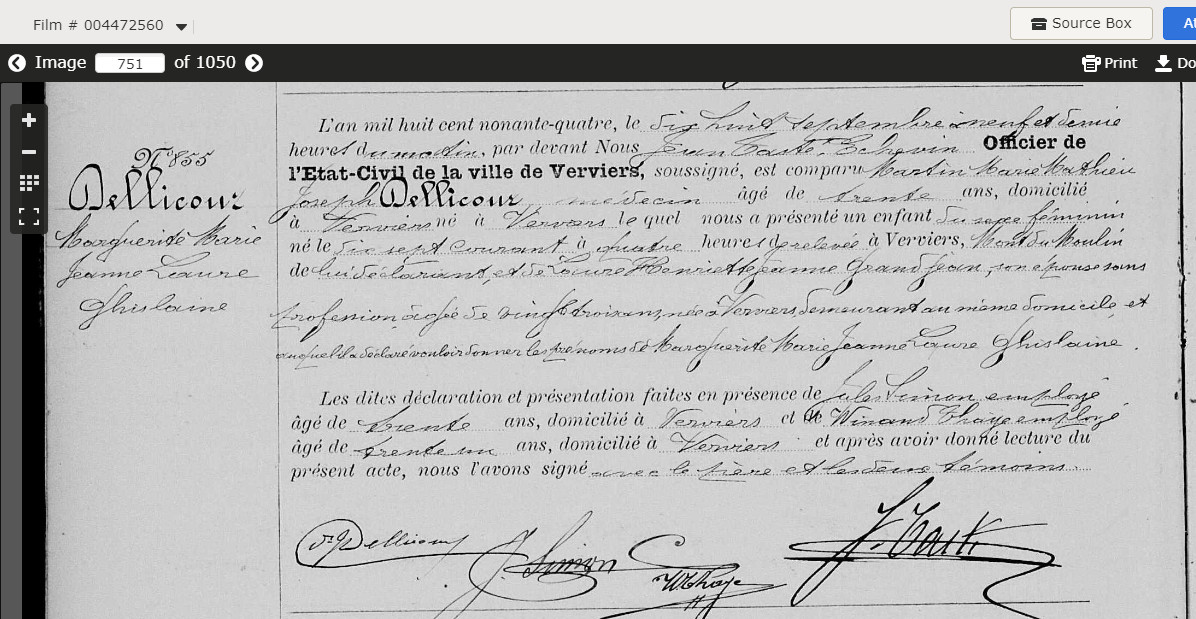 Film # 004472560
Source Box
Image 751 of 1050
Print
Do
N° 855
Dellicour
Marguerite Marie
Jeanne Laure
Ghislaine
L'an mil huit cent nonante-quatre, le dix huit septembre à neuf et demie
heures du matin, par devant Nous Jean Tasté, Echevin Officier de
l'Etat-Civil de la ville de Verviers, soussigné, est comparu Martin Marie Mathieu
Joseph Dellicour, médecin âgé de trente ans, domicilié
à Verviers né à Verviers lequel nous a présenté un enfant du sexe féminin
né le dix sept courant à quatre heures de relevée à Verviers, Mont du Moulin
de lui déclarant, et de Laure Henriette Jeanne Grandjean, son épouse sans
profession, âgée de vingt trois ans, née à Verviers, demeurant au même domicile, et
auquel il a déclaré vouloir donner les prénoms de Marguerite Marie Jeanne Laure Ghislaine.
Les dites déclaration et présentation faites en présence de Jules Simon employé
âgé de trente ans, domicilié à Verviers et de Winand Thaye employé
âgé de trente un ans, domicilié à Verviers et après avoir donné lecture du
présent acte, nous l'avons signé avec le père et les deux témoins.
Dellicour
J. Simon
W Thaye